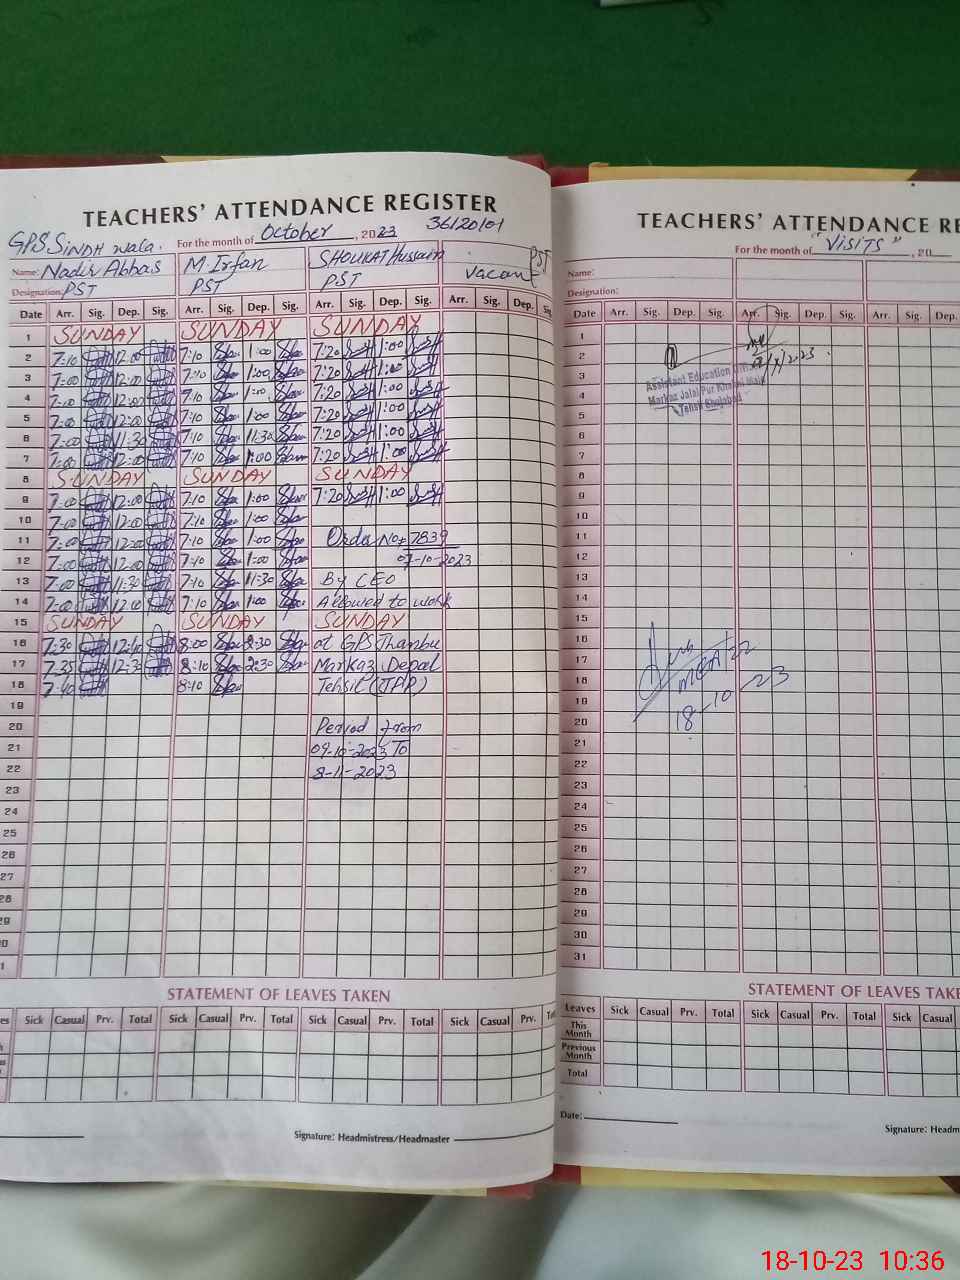 TEACHERS' ATTENDANCE REGISTER
GPS. SINDH wala. For the month of October, 2023 36120101
Name: Nadir Abbas M. Irfan SHOUKAT Hussain Vacant
Designation: PST PST PST PST
Date Arr. Sig. Dep. Sig. Arr. Sig. Dep. Sig. Arr. Sig. Dep. Sig. Arr. Sig. Dep. Sig.
1 SUNDAY SUNDAY SUNDAY
2 7:10 12:00 7:10 1:00 7:20 1:00
3 7:00 12:00 7:10 1:00 7:20 1:00
4 7:00 12:00 7:10 1:00 7:20 1:00
5 7:00 12:00 7:10 1:00 7:20 1:00
6 7:00 11:30 7:10 11:30 7:20 1:00
7 7:00 12:00 7:10 1:00 7:20 1:00
8 SUNDAY SUNDAY SUNDAY
9 7:00 12:00 7:10 1:00 7:20 1:00
10 7:00 12:00 7:10 1:00
11 7:00 12:00 7:10 1:00 Order No 7839
12 7:00 12:00 7:10 1:00 07-10-2023
13 7:00 11:30 7:10 11:30 By CEO
14 7:00 12:00 7:10 1:00 Allowed to work
15 SUNDAY SUNDAY SUNDAY
16 7:30 12:10 8:00 2:30 at GPS Thanbu
17 7:35 12:30 8:10 2:30 Markaz Depal
18 7:40 8:10 Tehsil (JPP)
19
20 Period from
21 09-10-2023 To
22 8-11-2023
23
24
25
26
27
28
29
30
31
STATEMENT OF LEAVES TAKEN
Sick Casual Prv. Total Sick Casual Prv. Total Sick Casual Prv. Total Sick Casual Prv.
Signature: Headmistress/Headmaster
TEACHERS' ATTENDANCE RE
For the month of "VISITS", 20
Name:
Designation:
Date Arr. Sig. Dep. Sig. Arr. Sig. Dep. Sig. Arr. Sig. Dep.
1
2
3
4
Assistant Education Officer
Markaz Jalal Pur
Tehsil
5
6
7
8
9
10
11
12
13
14
15
16
17
18
MEA-22
18-10-23
19
20
21
22
23
24
25
26
27
28
29
30
31
STATEMENT OF LEAVES TAKE
Leaves Sick Casual Prv. Total Sick Casual Prv. Total Sick Casual
This Month
Previous Month
Total
Date:
Signature: Headm
18-10-23 10:36